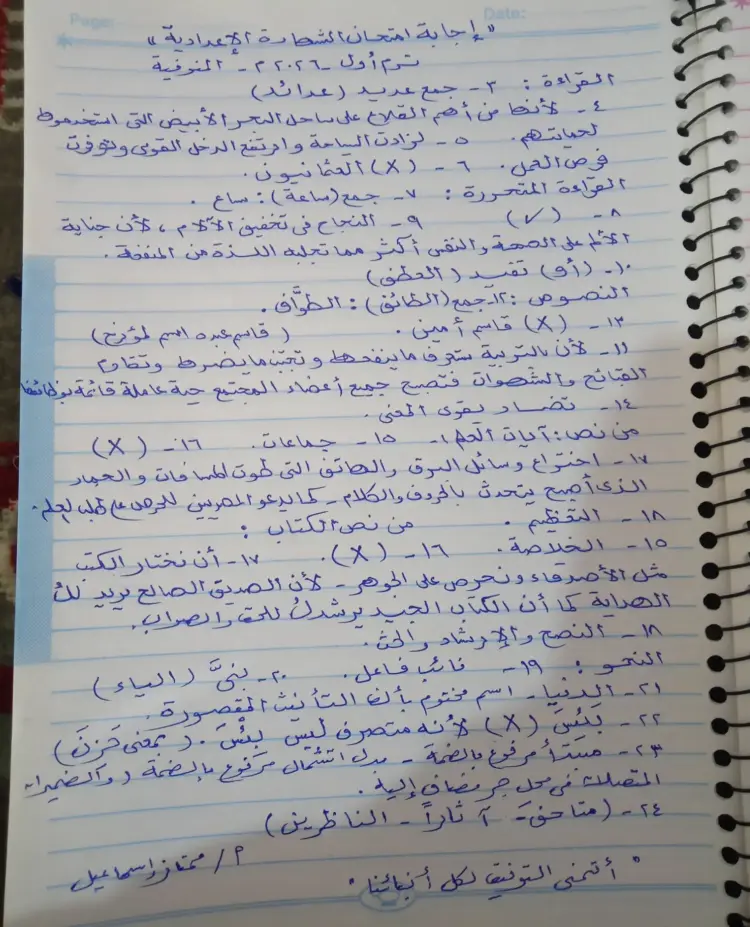 Page:
Date:
"إجابة امتحان الشهادة الإعدادية"
ترم أول ـ ٢٠٢٦م ـ المنوفية
القراءة : ٣- جمع عديد (عدائد)
٤- لأنها من أهم القلاع على ساحل البحر الأبيض التى استخدموها
لحمايتهم. ٥- لزادت السياحة وارتفع الدخل القومى وتوفرت
فرص العمل. ٦- (X) العثمانيون.
القراءة المتحررة : ٧- جمع (ساعة) : ساع .
٨- (✓) ٩- النجاح فى تخفيف الآلام ، لأن جناية
الألم على الصحة والنفس أكثر مما تجلبه اللذة من المنفعة .
١٠- (أو) تفيد (العطف)
النصوص : ١٢- جمع (الطائف) : الطوَّاف.
١٣- (X) قاسم أمين . (قاسم عبده اسم لمؤرخ)
١١- لأن بالتربية ستعرف ما ينفعها وتجتنب ما يضرها وتقاوم
القبائح والشهوات فتصبح جميع أعضاء المجتمع حية عاملة قائمة بوظائفها
١٤- تضاد يقوى المعنى.
من نص : آيات العلم ١٥- جماعات. ١٦- (X)
١٧- اختراع وسائل البرق والهاتف التى طوت المسافات والجماد
الذى أصبح يتحدث بالحروف والكلام - كما يدعو المصريين للحرص على طلب العلم.
١٨- التعظيم . من نص الكتاب :
١٥- الخلاصة. ١٦- (X). ١٧- أن نختار الكتب
مثل الأصدقاء ونحرص على الجوهر - لأن الصديق الصالح يريد لك
الهداية كما أن الكتاب الجيد يرشدك للحق والصواب.
١٨- النصح والإرشاد والحث.
النحو : ١٩- نائب فاعل. ٢٠- بنىَّ (الياء)
٢١- الدنيا - اسم مختوم بألف التأنيث المقصورة.
٢٢- بَئِسَ (X) لأنه متصرف ليس بِئْسَ . (بمعنى حَزِنَ)
٢٣- مبتدأ مرفوع بالضمة - بدل اشتمال مرفوع بالضمة (والضمير)
المتصل فى محل جر مضاف إليه .
٢٤- (متاحف - آثاراً - الناظرين)
" أتمنى التوفيق لكل أبنائنا "
أ/ ممتاز إسماعيل